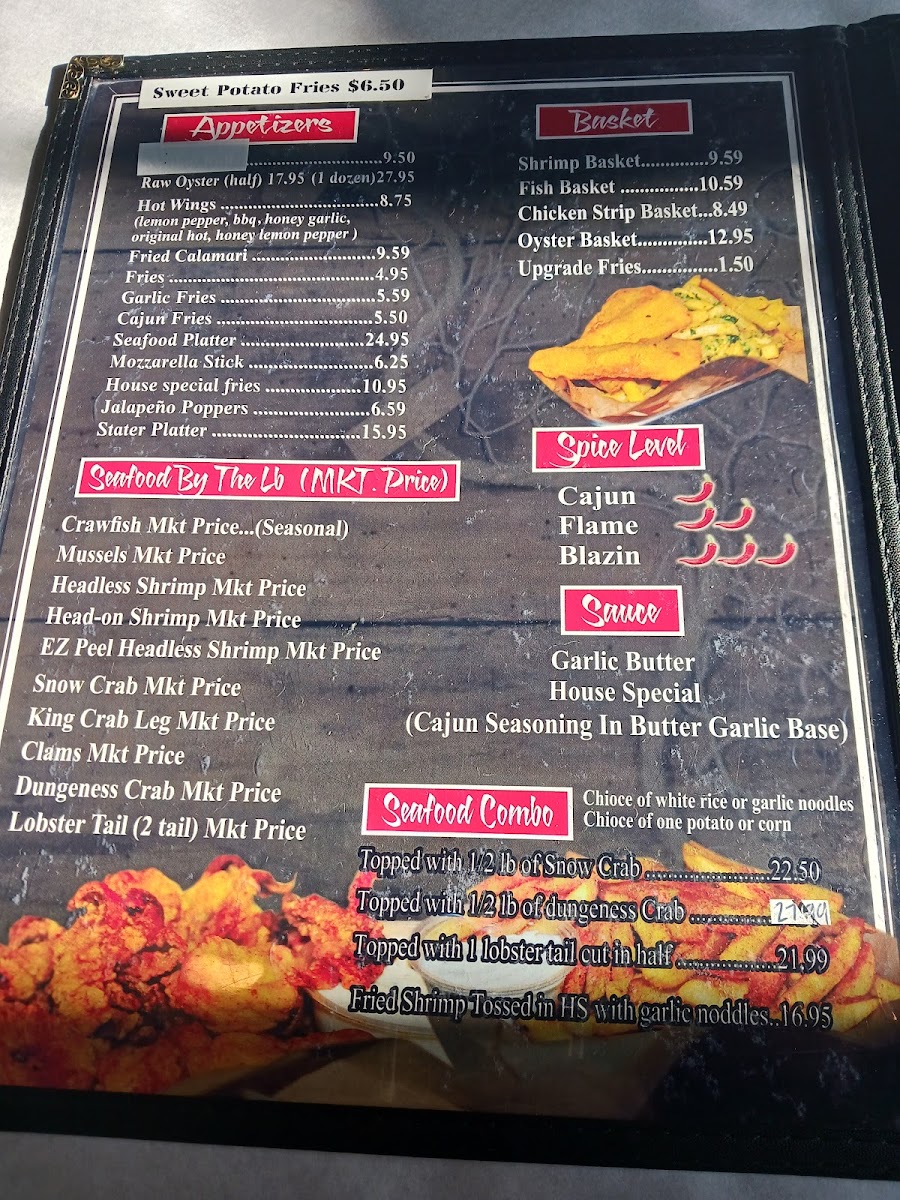 Sweet Potato Fries $6.50
Appetizers
..............................9.50
Raw Oyster (half) 17.95 (1 dozen)27.95
Hot Wings ..............................8.75
(lemon pepper, bbq, honey garlic,
original hot, honey lemon pepper )
Fried Calamari ........................9.59
Fries ........................................4.95
Garlic Fries ..............................5.59
Cajun Fries ...............................5.50
Seafood Platter ........................24.95
Mozzarella Stick ........................6.25
House special fries ...................10.95
Jalapeño Poppers .......................6.59
Stater Platter .............................15.95
Seafood By The Lb (MKT. Price)
Crawfish Mkt Price...(Seasonal)
Mussels Mkt Price
Headless Shrimp Mkt Price
Head-on Shrimp Mkt Price
EZ Peel Headless Shrimp Mkt Price
Snow Crab Mkt Price
King Crab Leg Mkt Price
Clams Mkt Price
Dungeness Crab Mkt Price
Lobster Tail (2 tail) Mkt Price
Basket
Shrimp Basket..............9.59
Fish Basket ................10.59
Chicken Strip Basket...8.49
Oyster Basket..............12.95
Upgrade Fries...............1.50
Spice Level
Cajun
Flame
Blazin
Sauce
Garlic Butter
House Special
(Cajun Seasoning In Butter Garlic Base)
Seafood Combo
Chioce of white rice or garlic noodles
Chioce of one potato or corn
Topped with 1/2 lb of Snow Crab ....................22.50
Topped with 1/2 lb of dungeness Crab .............
Topped with 1 lobster tail cut in half ................21.99
Fried Shrimp Tossed in HS with garlic noddles..16.95